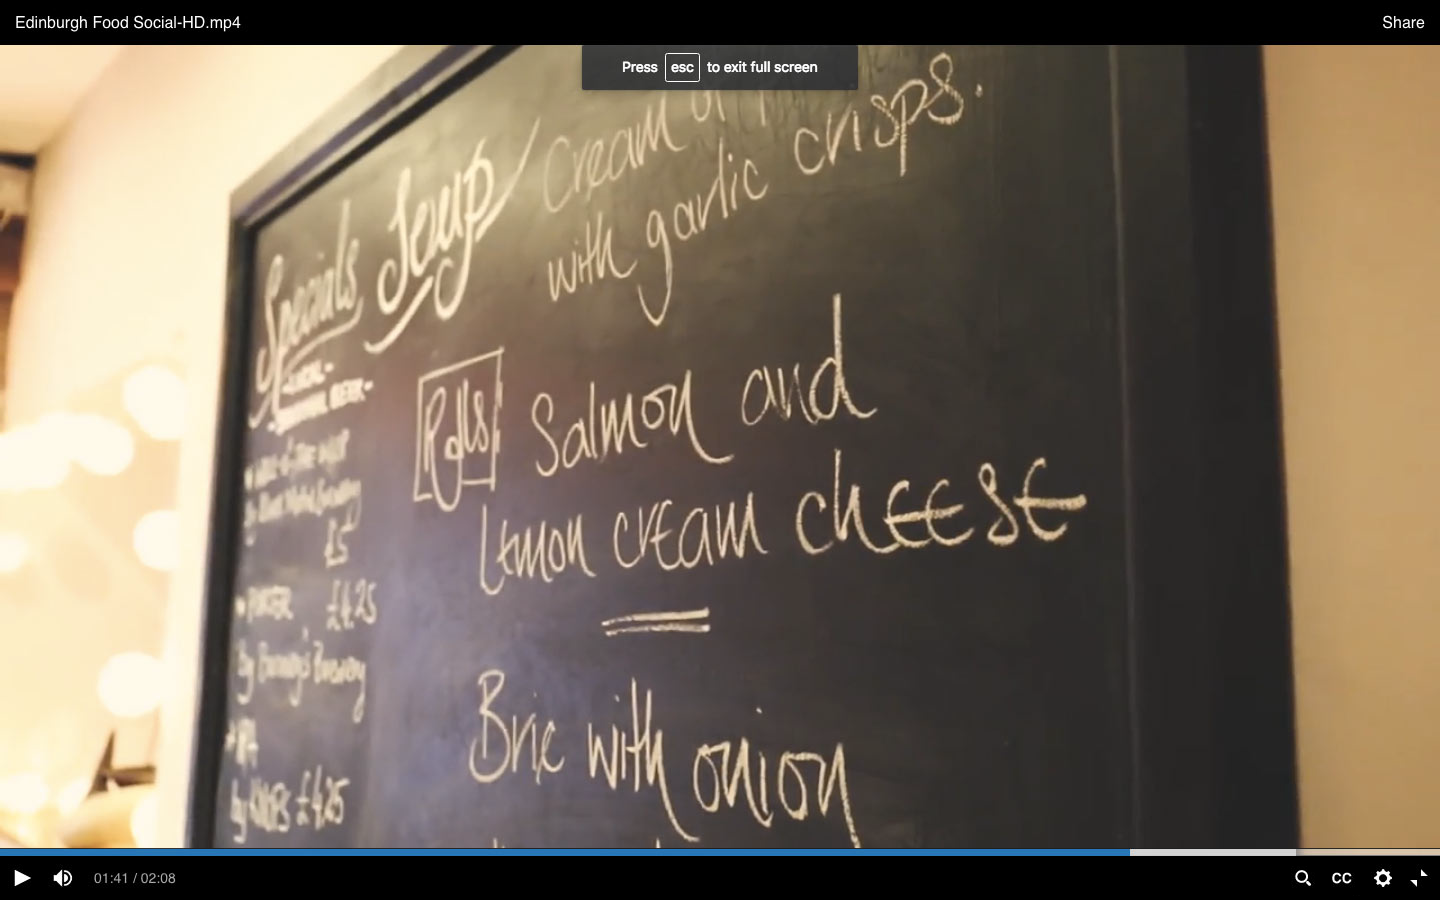 Edinburgh Food Social-HD.mp4
Share
Press esc to exit full screen
Specials
Soup/ Cream of
with garlic crisps.
Rolls Salmon and
lemon cream cheese
Brie with onion
£5
PORTER £4.25
by Barney's Brewery
by KNOPS £4.25
01:41 / 02:08
CC